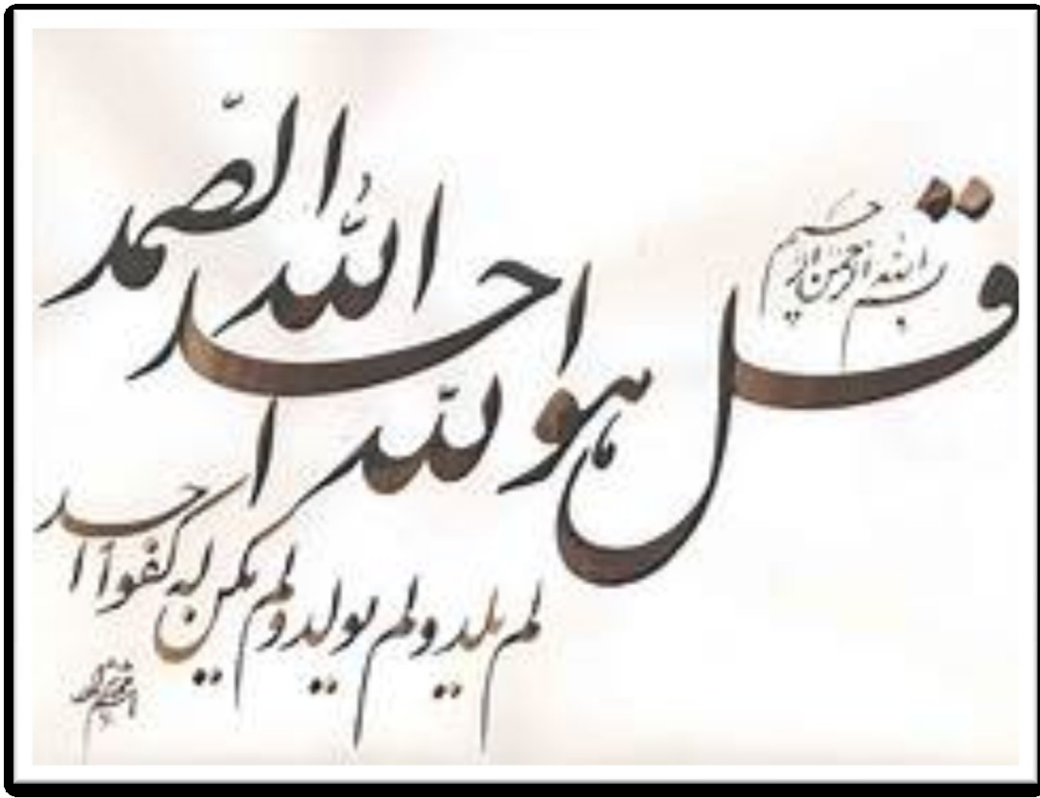 بسم الله الرحمن الرحیم
قل هو الله احد
الله الصّمد
لم یلد و لم یولد و لم یکن له کفواً احد